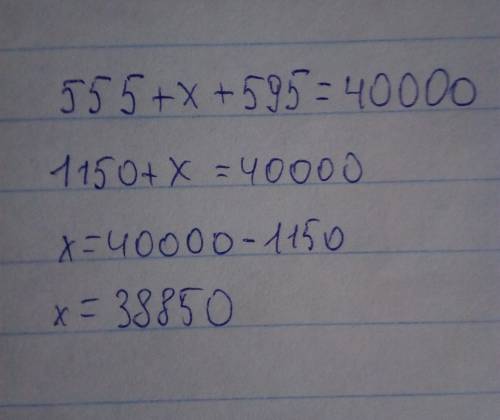 555+x+595=40000
1150+x=40000
x=40000-1150
x=38850